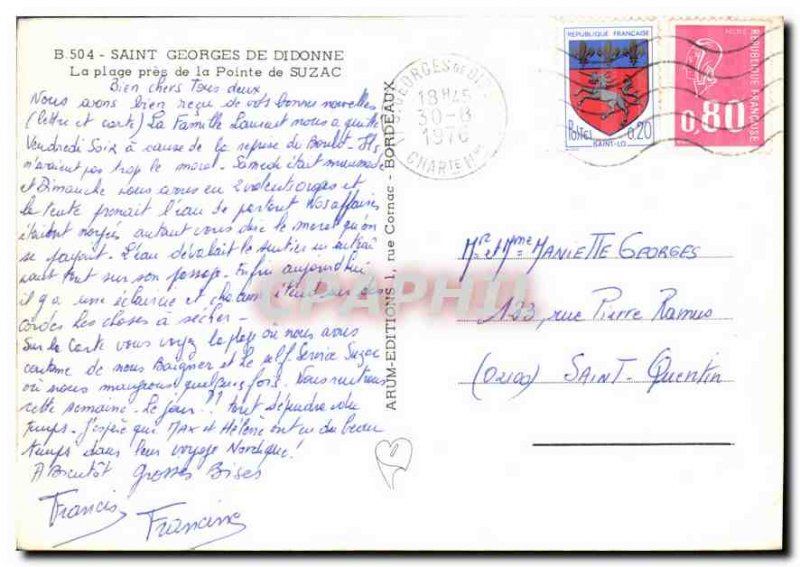 B.504 - SAINT GEORGES DE DIDONNE
La plage près de la Pointe de SUZAC
Bien chers Tous deux
Nous avons bien reçu de vos bonnes nouvelles
(lettre et carte) La Famille Laurent nous a quitté
Vendredi Soir à cause de la reprise du Boulot. Ils
n'avaient pas trop le moral. Samedi était maussade
et Dimanche nous avons eu 2 violents orages et
la tente prenait l'eau de partout Nos affaires
étaient autant vous dire le moral qu'on
se payait. L'eau dévalait le sentier en
tout sur son passage. Enfin aujourd'hui
il y a une éclaircie et chacun étend sur des
cordes les choses à sécher -
Sur la Carte vous voyez la plage où nous avons
coutume de nous Baigner et le self Service Suzac
où nous mangeons quelques fois. Nous rentrons
cette semaine. Le jour !! tout dépendra du
Temps. J'espère que Max et Hélène ont eu du beau
temps dans leur voyage Nordique!
A Bientôt Grosses Bises
Francis
Francine
ARUM-EDITIONS 1, rue Cornac - BORDEAUX
ST GEORGES DE DI
18H45
30-8
1976
CHARTE Mme
REPUBLIQUE FRANÇAISE
POSTES
0,20
SAINT-LO
POSTES
0,80
REPUBLIQUE FRANÇAISE
Mr et Mme MANIETTE GEORGES
123, rue Pierre Ramus
(02100) SAINT-Quentin
CPAPHIL